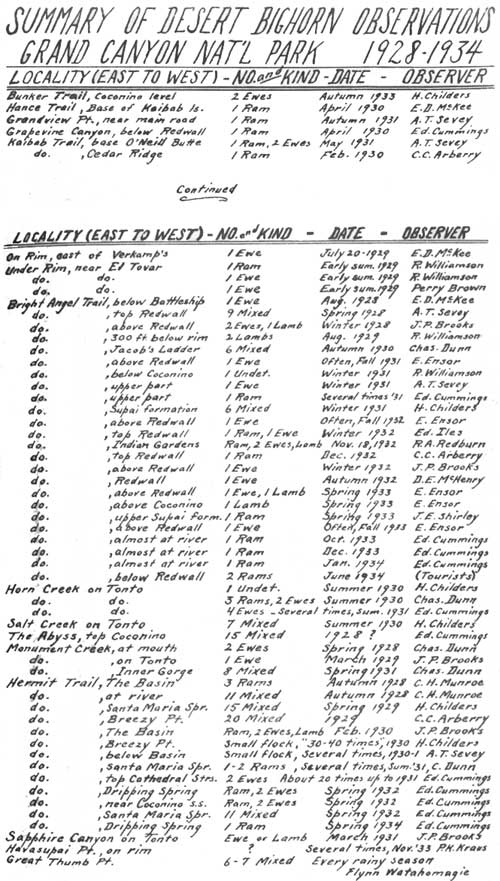 SUMMARY OF DESERT BIGHORN OBSERVATIONS
GRAND CANYON NAT'L PARK 1928-1934
LOCALITY (EAST TO WEST) - NO. and KIND - DATE - OBSERVER
Bunker Trail, Coconino level 2 Ewes Autumn 1933 H. Childers
Hance Trail, Base of Kaibab ls. 1 Ram April 1930 E.D. McKee
Grandview Pt., near main road 1 Ram Autumn 1931 A.T. Sevey
Grapevine Canyon, below Redwall 1 Ram April 1930 Ed. Cummings
Kaibab Trail, base O'Neill Butte 1 Ram, 2 Ewes May 1931 A.T. Sevey
do. , Cedar Ridge 1 Ram Feb. 1930 C.C. Arberry
Continued
LOCALITY (EAST TO WEST) - NO. and KIND - DATE - OBSERVER
On Rim, east of Verkamp's 1 Ewe July 20-1929 E.D. McKee
Under Rim, near El Tovar 1 Ram Early sum. 1929 R. Williamson
do. do. 1 Ewe Early sum. 1929 R. Williamson
do. do. 1 Ewe Early sum. 1929 Perry Brown
Bright Angel Trail, below Battleship 1 Ewe Aug. 1928 E.D. McKee
do. , top Redwall 9 Mixed Spring 1928 A.T. Sevey
do. , above Redwall 2 Ewes, 1 Lamb Winter 1928 J.P. Brooks
do. , 300 ft below rim 2 Lambs Aug. 1929 R. Williamson
do. , Jacob's Ladder 6 Mixed Autumn 1930 Chas. Dunn
do. , above Redwall 1 Ewe Often, Fall 1931 E. Ensor
do. , below Coconino 1 Undet. Winter 1931 R. Williamson
do. , upper part 1 Ewe Winter 1931 A.T. Sevey
do. , upper part 1 Ram Several times '31 Ed. Cummings
do. , Supai formation 6 Mixed Winter 1931 H. Childers
do. , above Redwall 1 Ewe Often, Fall 1932 E. Ensor
do. , top Redwall 1 Ram, 1 Ewe Winter 1932 Ed. Iles
do. , Indian Gardens Ram, 2 Ewes, Lamb Nov. 18, 1932 R.A. Redburn
do. , top Redwall 1 Ram Dec. 1932 C.C. Arberry
do. , above Redwall 1 Ewe Winter 1932 J.P. Brooks
do. , Redwall 1 Ewe Autumn 1932 D.E. McHenry
do. , above Redwall 1 Ewe, 1 Lamb Spring 1933 E. Ensor
do. , above Coconino 1 Lamb Spring 1933 E. Ensor
do. , upper Supai form. 1 Ram Spring 1933 J.E. Shirley
do. , above Redwall 1 Ewe Often, Fall 1933 E. Ensor
do. , almost at river 1 Ram Oct. 1933 Ed. Cummings
do. , almost at river 1 Ram Dec. 1933 Ed. Cummings
do. , almost at river 1 Ram Jan. 1934 Ed. Cummings
do. , below Redwall 2 Rams June 1934 (Tourists)
Horn Creek on Tonto 1 Undet. Summer 1930 H. Childers
do. do. 3 Rams, 2 Ewes Summer 1930 Chas. Dunn
do. do. 4 Ewes - Several times, Sum. 1931 Ed. Cummings
Salt Creek on Tonto 7 Mixed Summer 1930 H. Childers
The Abyss, top Coconino 15 Mixed 1928 ? Ed. Cummings
Monument Creek, at mouth 2 Ewes Spring 1928 Chas. Dunn
do. , on Tonto 1 Ewe March 1929 J.P. Brooks
do. , Inner Gorge 8 Mixed Spring 1931 Chas. Dunn
Hermit Trail, The Basin 3 Rams Autumn 1928 C.H. Munroe
do. , at river 11 Mixed Autumn 1928 C.H. Munroe
do. , Santa Maria Spr. 15 Mixed Spring 1929 H. Childers
do. , Breezy Pt. 20 Mixed 1929 C.C. Arberry
do. , The Basin Ram, 2 Ewes, Lamb Feb. 1930 J.P. Brooks
do. , Breezy Pt. Small flock, "30-40 times", 1930 H. Childers
do. , below Basin Small flock, Several times, 1930-1 A.T. Sevey
do. , Santa Maria Spr. 1-2 Rams, Several times, Sum. '31, C. Dunn
do. , top Cathedral Strs. 2 Ewes About 20 times up to 1931 Ed. Cummings
do. , Dripping Spring Ram, 2 Ewes Spring 1932 Ed. Cummings
do. , near Coconino s.s. Ram, 2 Ewes Spring 1932 Ed. Cummings
do. , Santa Maria Spr. 11 Mixed Spring 1932 Ed. Cummings
do. , Dripping Spring 1 Ram Spring 1934 Ed. Cummings
Sapphire Canyon on Tonto Ewe or Lamb March 1931 J.P. Brooks
Havasupai Pt., on rim ? Several times, Nov. '33 P.K. Kraus
Great Thumb Pt. 6-7 Mixed Every rainy season
Flynn Watahomagie